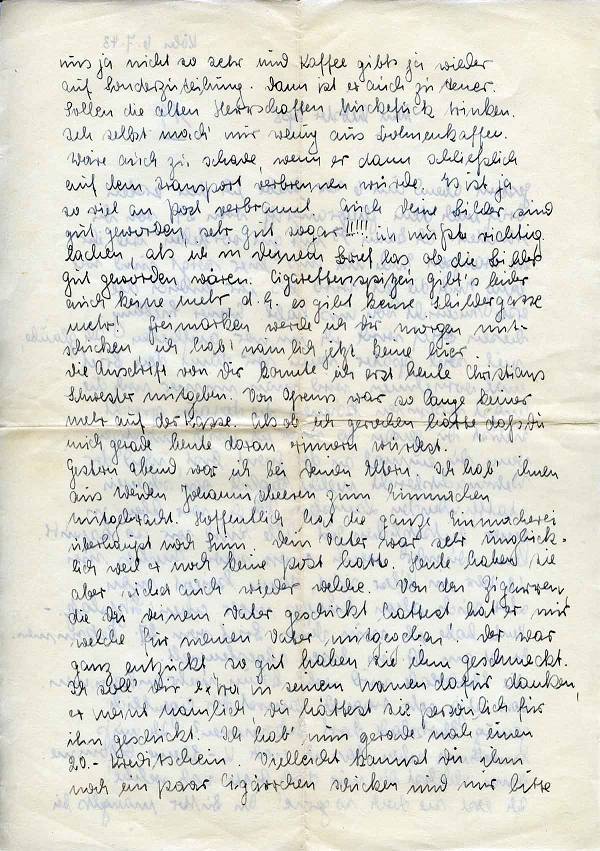 uns ja nicht so sehr und Kaffee gibts ja wieder
auf Sonderzuteilung. Dann ist er auch zu teuer.
Sollen die alten Herrschaften Muckefuck trinken.
Ich selbst mach' mir wenig aus Bohnenkaffee.
Wäre auch zu schade, wenn er dann schließlich
auf dem Transport verbrennen würde. Es ist ja
so viel an Post verbrannt. Auch Deine Bilder sind
gut geworden, sehr gut sogar!!!!! ich mußte richtig
lachen, als ich in deinem Brief las ob die Bilder
gut geworden wären. Cigarettenspitzen gibt's leider
auch keine mehr, d.h. es gibt keine Schildergasse
mehr! Freimarken werde ich dir morgen mit-
schicken ich hab' nämlich jetzt keine hier.
Die Anschrift von Dir konnte ich erst heute Christians
Schwester mitgeben. Von war so lange keiner
mehr auf der Kasse. Als ob ich gerochen hätte daß Du
mich gerade heute daran erinnern würdest.
Gestern abend war ich bei Deinen Eltern. Ich hab' ihnen
aus Weiden Johannisbeeren zum Einmachen
mitgebracht. Hoffentlich hat die ganze Einmacherei
überhaupt noch Sinn. Dein Vater war sehr unglück-
lich weil er noch keine Post hatte. Heute haben sie
aber sicher auch wieder welche. Von den Zigarren,
die Du deinem Vater geschickt hattest hat er mir
welche für meinen Vater mitgegeben. Der war
ganz entzückt so gut haben sie ihm geschmeckt.
Ich soll dir extra in seinem Namen dafür danken,
er meint nämlich, du hättest sie persönlich für
ihn geschickt. Ich hab' nun gerade noch einen
20.- Kreditschein. Vielleicht kannst Du ihm
noch ein paar Cigärrchen schicken und mir bitte